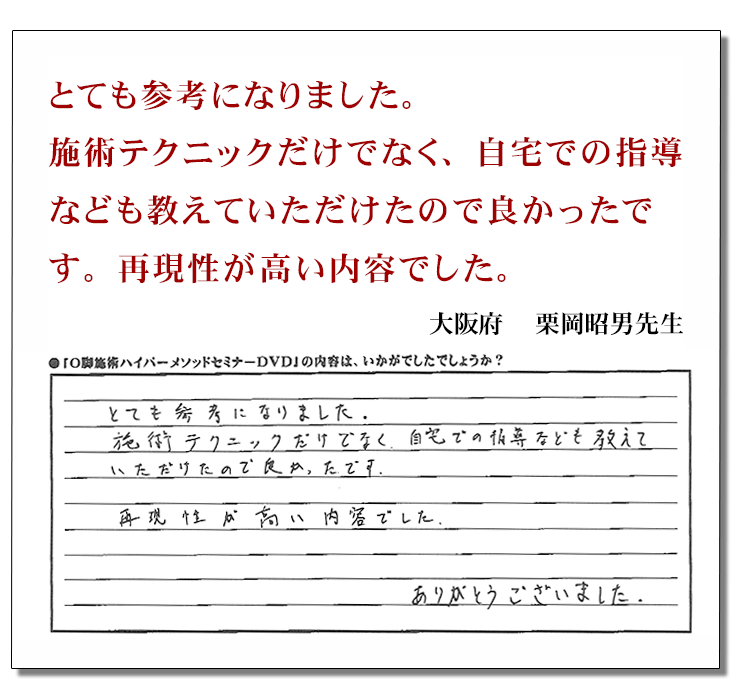 とても参考になりました。
施術テクニックだけでなく、自宅での指導
なども教えていただけたので良かったで
す。再現性が高い内容でした。
大阪府　栗岡昭男先生
●「O脚施術ハイパーメソッドセミナーDVD」の内容は、いかがでしたでしょうか？
とても参考になりました。
施術テクニックだけでなく、自宅での指導なども教えて
いただけたので良かったです。
再現性が高い内容でした。
ありがとうございました。